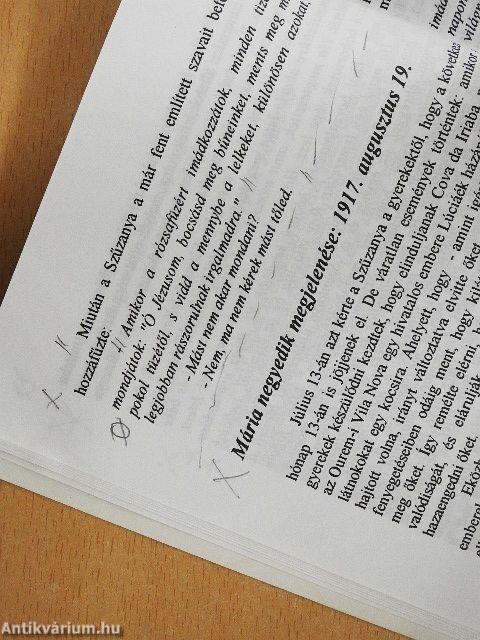 Miután a Szűzanya a már fent említett szavait
hozzáfűzte:
Amikor a rózsafüzért imádkozzátok, minden
mondjátok: "Ó Jézusom, bocsásd meg bűneinket, ments meg
pokol tüzétől, s vidd a mennybe a lelkeket, különösen azokat,
legjobban rászorulnak irgalmadra."
- Mást nem akar mondani?
- Nem, ma nem kérek mást tőled.
Mária negyedik megjelenése: 1917. augusztus 19.
Július 13-án azt kérte a Szűzanya a gyerekektől, hogy a
hónap 13-án is jöjjenek el. De váratlan események történtek: amikor
gyerekek készülődni kezdtek, hogy elinduljanak Cova da Iriába,
az Ourem-i Vila Nova egy hivatalos embere Lúciáék
látnokokat egy kocsira. Ahelyett, hogy - amint
hajtott volna, irányt változtatva elvitte őket
fenyegetéseiben odáig ment, hogy
meg őket. Így remélte elérni, hogy
valódiságát, és elárulják
hazaengedni őket.
Antikvárium.hu